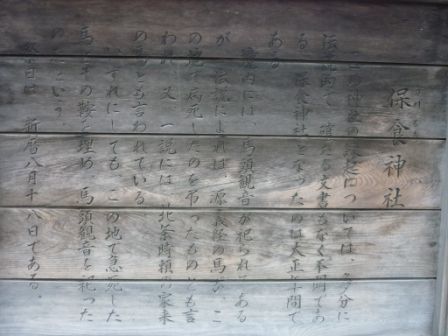 保食神社
この神社の
については、多分に
伝説的で、確たる文書もなく不明であ
る。保食神社となったのは大正年間で
ある。
境内には、馬頭観音が祀られてある
が、伝説によれば、源義経の馬がこ
の地で病死したのを弔ったものとも言
われ、又、一説には、北条時頼の家来
の馬とも言われている。
いずれにしても、この地で急死した
馬とその鞍を埋め、馬頭観音を祀った
のだという。
祭日は、新暦八月十八日である。